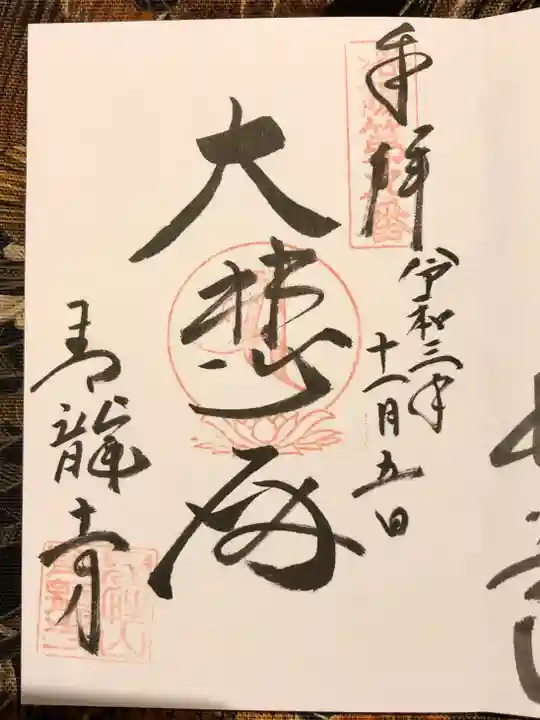 奉拝
令和三年
十一月五日
大悲殿
青龍寺